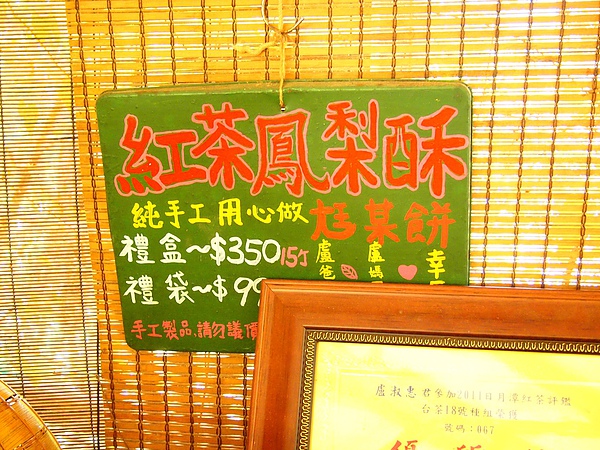 紅茶鳳梨酥
純手工用心做
尪某餅
禮盒~$350 15入
禮袋~$99
盧爸
盧媽
幸
手工製品、請勿議價
盧淑惠 君參加2011日月潭紅茶評鑑
台茶18號種組榮獲
號碼:067
優